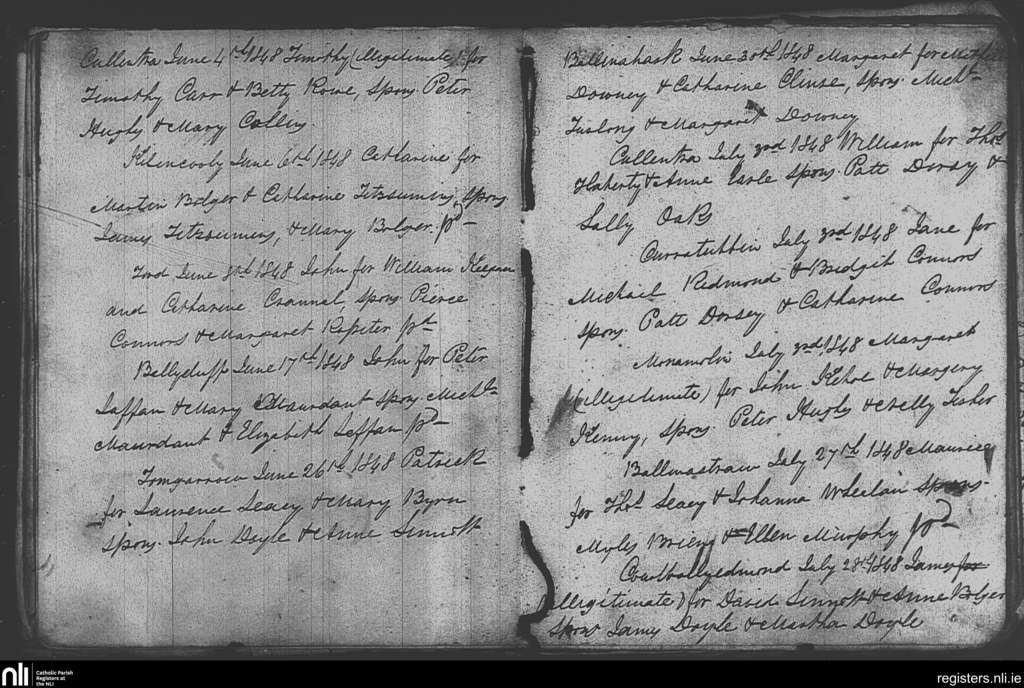 Cullentra June 4th 1848 Timothy (Illegitimate) for
Timothy Carr & Betty Rowe, spons Peter
Hughs & Mary Collins.
Kilnew June 6th 1848 Catharine for
Martin Bolger & Catharine Fitzsumins, spons
James Fitzsumins, & Mary Bolger. pd
Ford June 8th 1848 John for William Keegan
and Catharine Crannal, spons. Pierce
Connors & Margaret Rossiter pd
Ballyduff June 17th 1848 John for Peter
Laffan & Mary Maurdant spons. Michl
Maurdant & Elizabeth Leffan pd
Tomgarrow June 26th 1848 Patrick
for Lawrence Leacy & Mary Byrn
spons. John Doyle & Anne Sinnott
Ballinahask June 30th 1848 Margaret for
Downey & Catharine, spons Michl
Furlong & Margaret Downey
Cullentra July 3rd 1848 William for Thos
Flaherty & Anne Earle spons. Patt Dorsey &
Sally Oaks
Curratubbin July 3rd 1848 Jane for
Michail Redmond & Bridgit Connors
spons. Patt Dorsey & Catharine Connors
Monamolin July 3rd 1848 Margaret
(Illegitimate) for John Kehoe & Margery
Kenny, spons. Peter Hughs & Nelly Fisher
Ballinastraw July 27th 1848 Maurice
for Thos Leacy & Johanna Whelan spons.
Myles Brien & Ellen Murphy pd
Courtballyedmond July 28th 1848 James for
Illegitimate) for David Sinnott & Anne Bolger
spons James Doyle & Martha Doyle
nli
Catholic Parish
Registers at
the NLI
registers.nli.ie